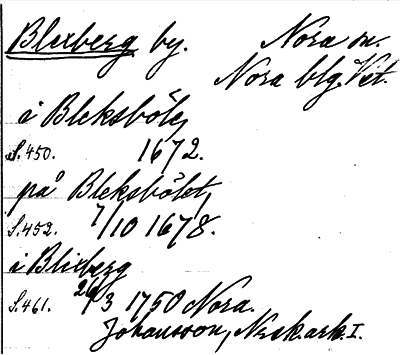 Blexberg by. Nora sn.
Nora blg. Vstl.
i Bleksbölę
S. 450. 1672.
på Bleksbölet,
S. 452. 7/10 1678.
i Blixberg
S. 461. 26/3 1750 Nora.
Johansson, Nesk. ark. I.